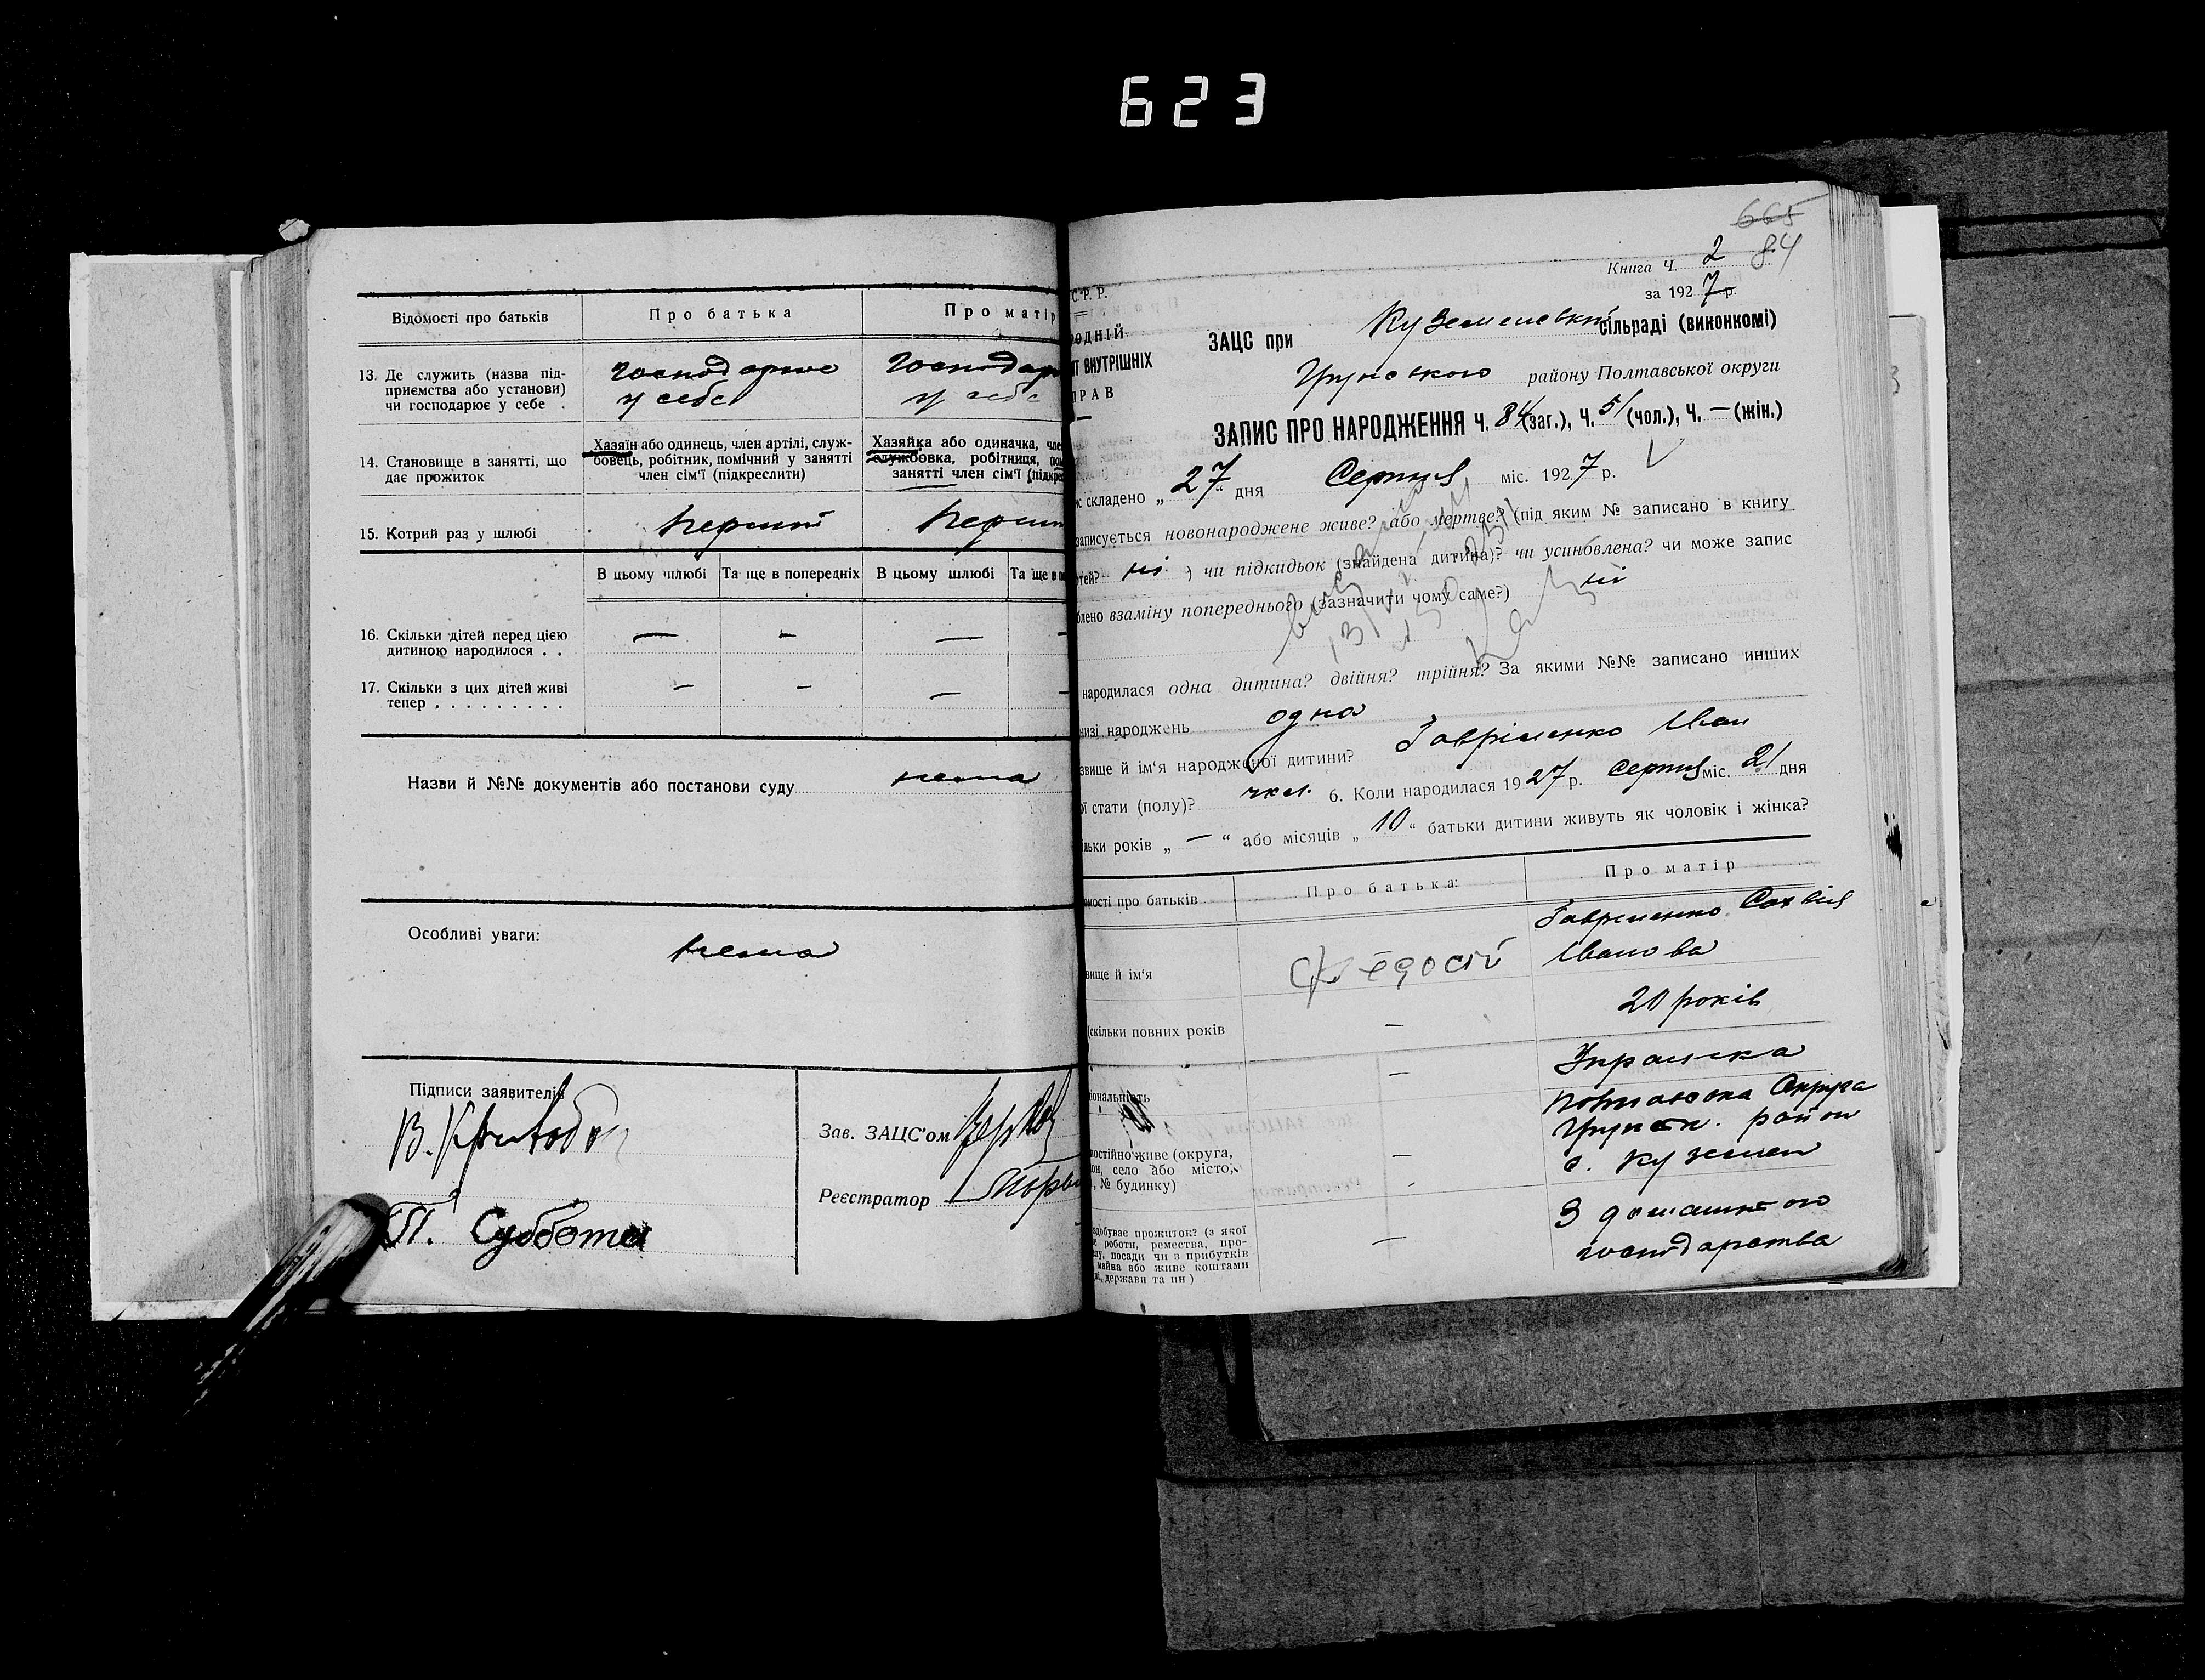 623
Відомості про батьків
Про батька
Про матір
13. Де служить (назва під-
приємства або установи)
чи господарює у себе .
господарює
у себе
господар
у себе
14. Становище в занятті, що
дає прожиток
Хазяїн або одинець, член артілі, служ-
бовець, робітник, помічний у занятті
член сім'ї (підкреслити)
Хазяйка або одиначка, чле
службовка, робітниця, по
занятті член сім'ї (підкре
15. Котрий раз у шлюбі
перший
перши
В цьому шлюбі
Та ще в попередніх
В цьому шлюбі
Та ще в по
16. Скільки дітей перед цією
дитиною народилося . .
— - — -
17. Скільки з цих дітей живі
тепер . . . . . . . . .
— - — -
Назви й №№ документів або постанови суду нема
Особливі уваги:
нема
Підписи заявителів
П. Суббота
Зав. ЗАЦС'ом
Реєстратор
665
84
Книга Ч. 2
за 1927 р.
С. Р. Р.
РОДНІЙ
Т ВНУТРІШНІХ
РАВ
ЗАЦС при Куземенській сільраді (виконкомі)
Грунського району Полтавської округи
ЗАПИС ПРО НАРОДЖЕННЯ Ч. 84 (заг.), Ч. 51 (чол.), Ч. — (жін.)
ис складено „27" дня Серпня міс. 1927 р.
записується новонароджене живе? або мертве? (під яким № записано в книгу
ртей? ні ) чи підкидьок (знайдена дитина)? чи усиновлена? чи може запис
блено взаміну попереднього (зазначити чому саме?) ні
народилася одна дитина? двійня? трійня? За якими №№ записано инших
низі народжень одна
звище й ім'я народженої дитини? Гавріленко Іван
ої стати (полу)? чол. 6. Коли народилася 1927 р. Серпня міс. 21 дня
льки років „ — " або місяців „ 10 " батьки дитини живуть як чоловік і жінка?
омості про батьків
Про батька:
Про матір
вище й ім'я
Федосій
Гавриленко Сохвія
Іванова
(скільки повних років
—
20 років
іональність
—
Українка
постійно живе (округа,
он, село або місто,
, № будинку)
—
Полтавська Округа
Грунськ. район
с. Куземен
здобуває прожиток? (з якої
е роботи, ремества, про-
лу, посади чи з прибутків
майна або живе коштами
ні, держави та ин )
—
З домашнього
господарства